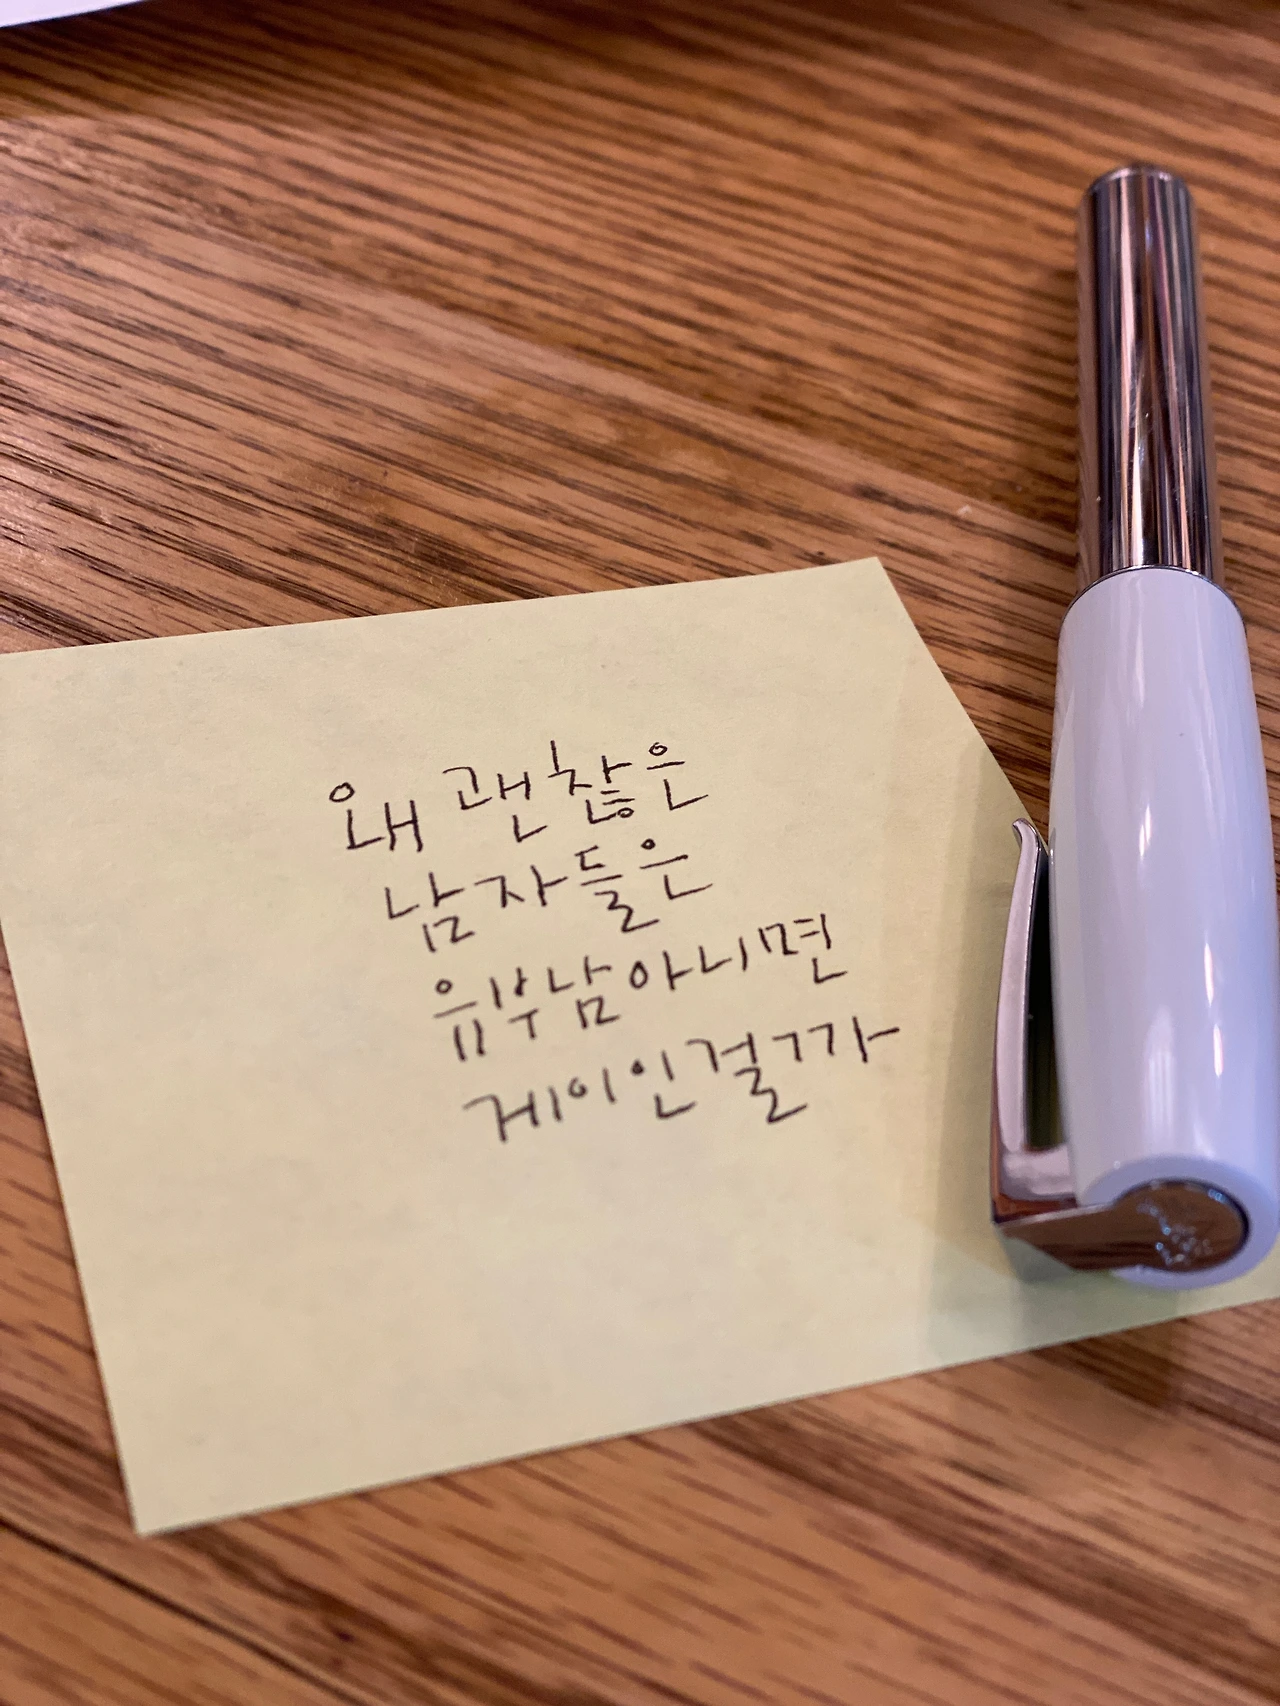 왜 괜찮은
남자들은
유부남아니면
게이인걸까